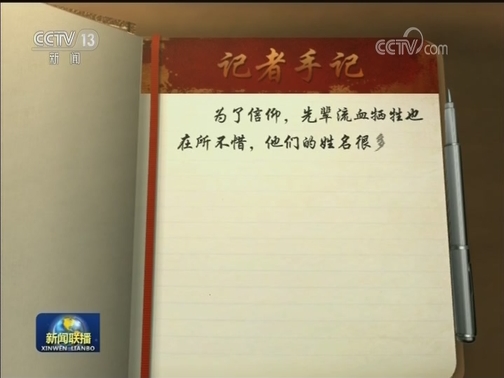 CCTV 13
新闻
CCTV.com
记者手记
为了信仰，先辈流血牺牲也
在所不惜，他们的姓名很多
新闻联播
XINWEN-LIANBO